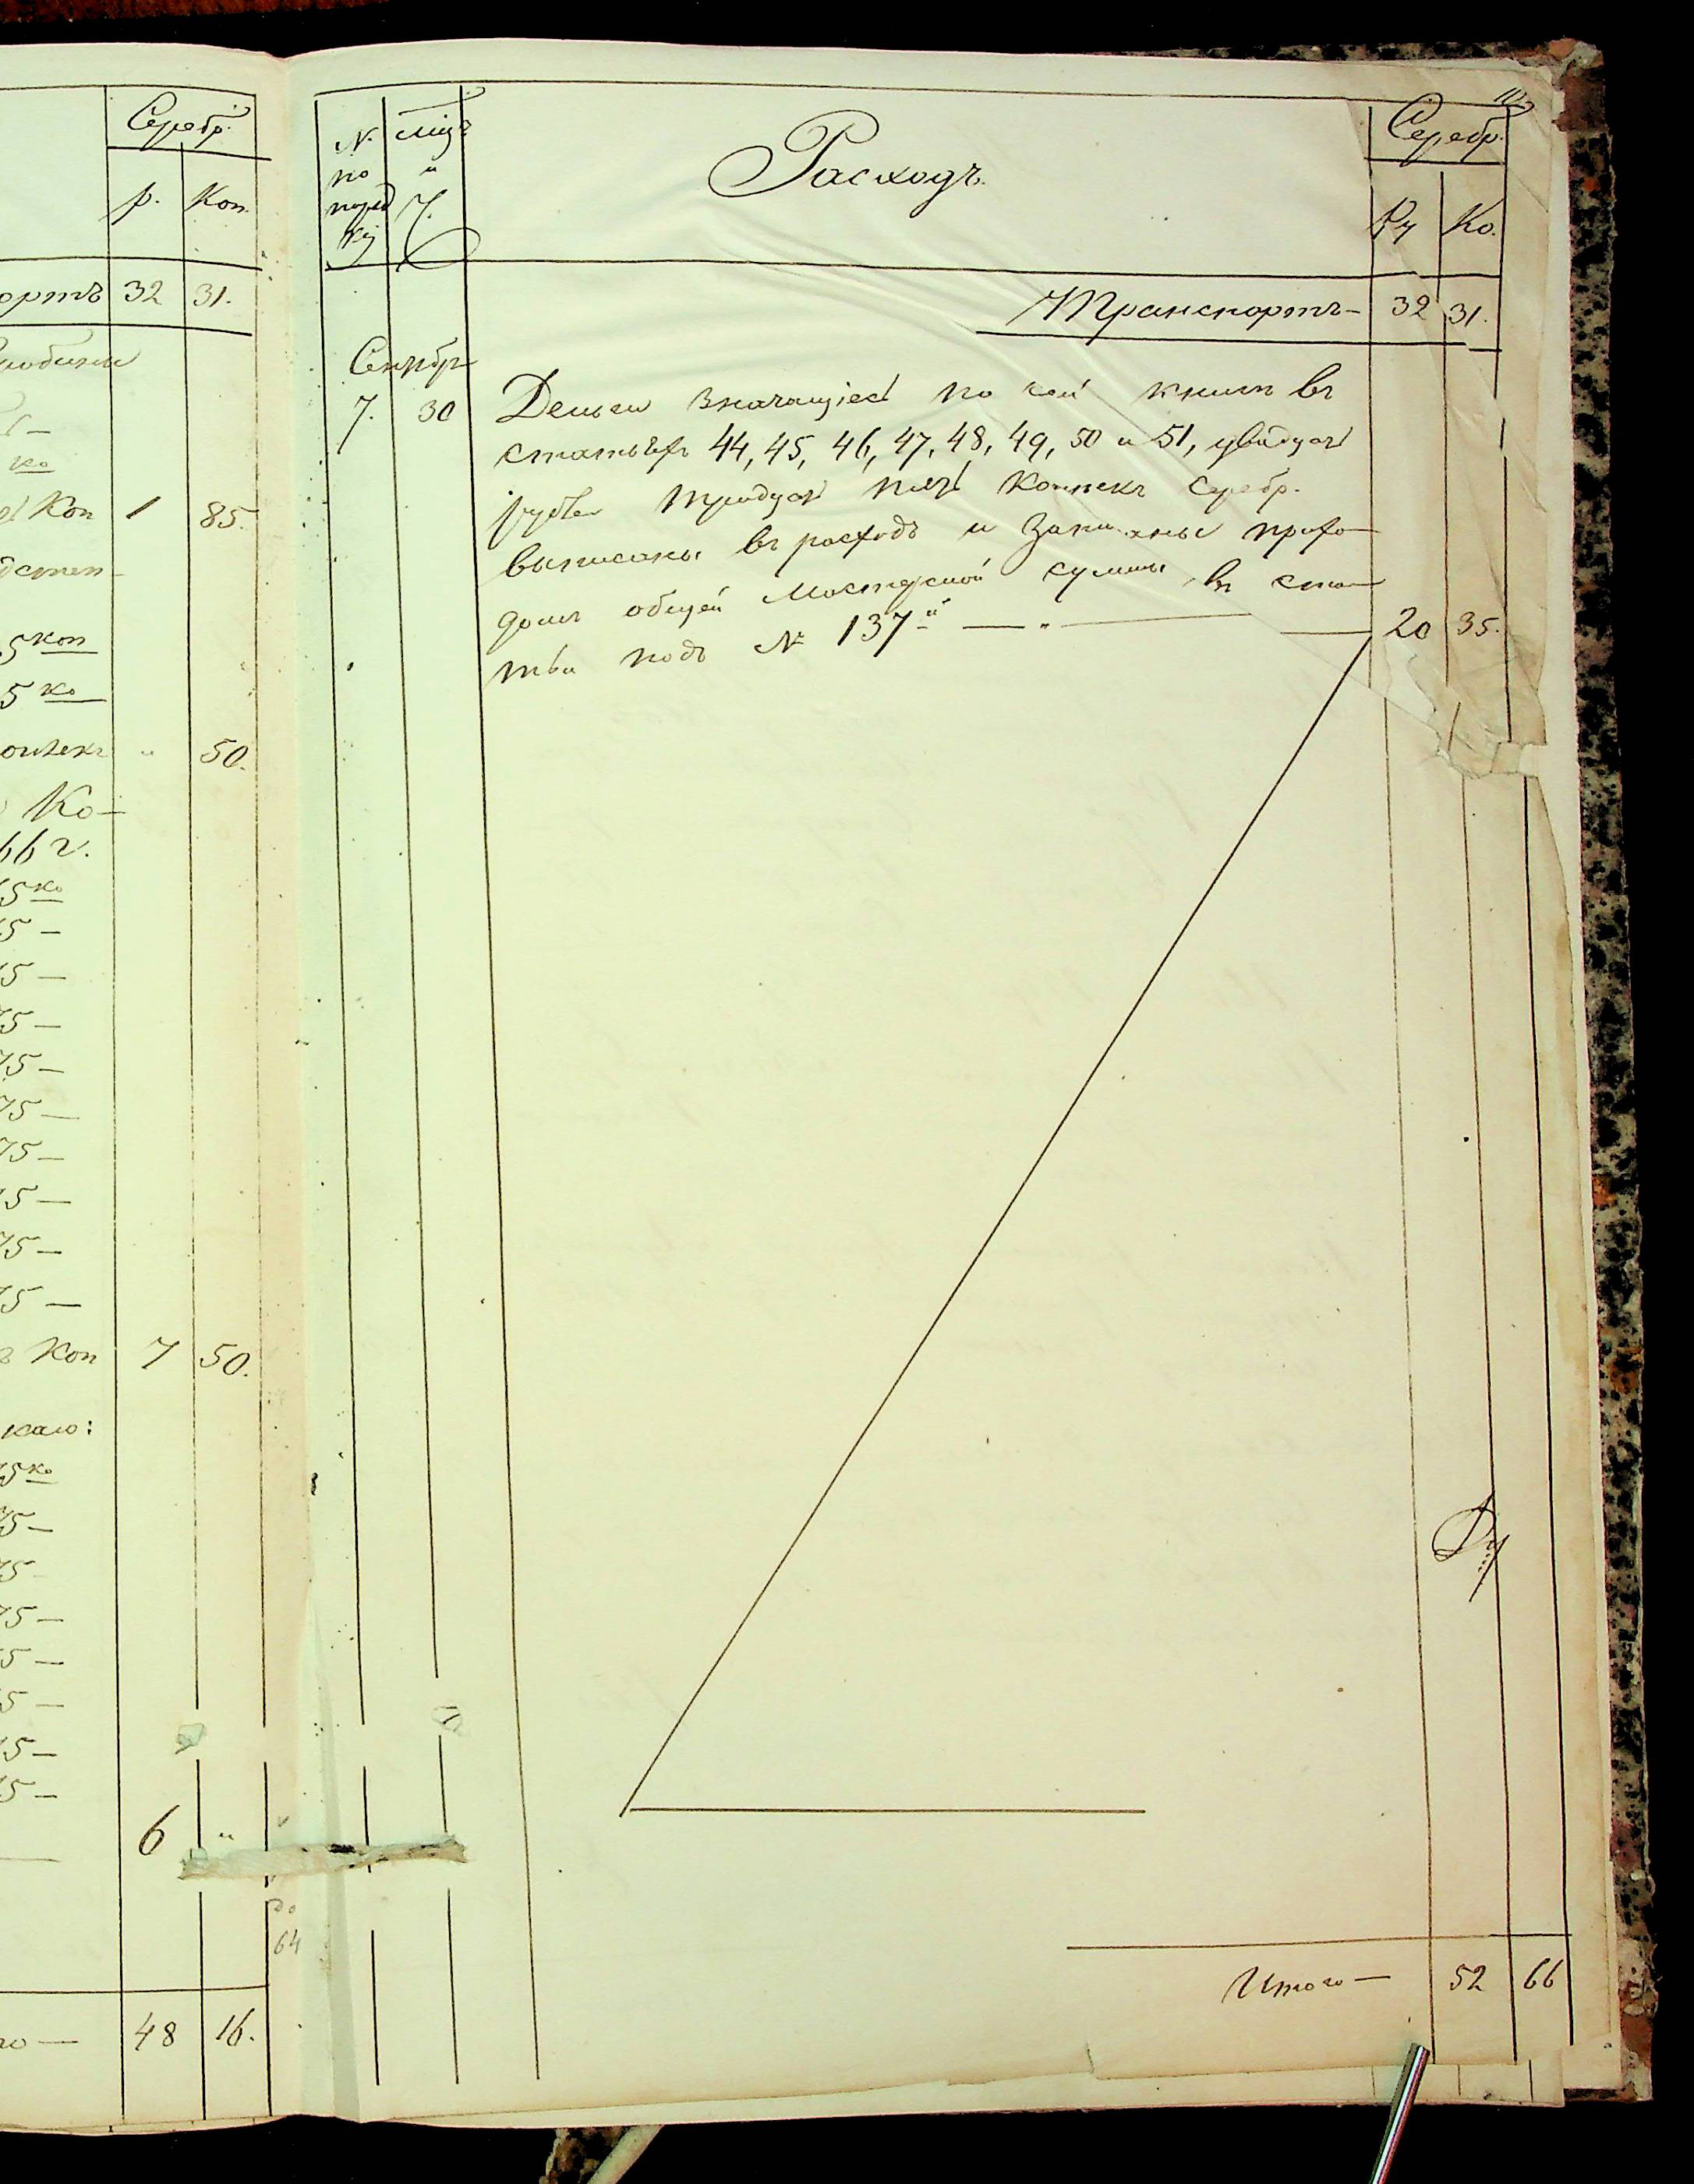 Серебр.
р. Коп.
ортъ 32 31.
ко
Коп 1 85.
5 коп
5 ко
50.
Ко-
66 г.
5 ко
5 —
5 —
75 —
75 —
75 —
75 —
75 —
75 —
75 —
Коп 7 50.
75 ко
75 —
75
75 —
5 —
5 —
75 —
75 —
6 „
64
48 16.
№ по поряд мѣс. и Ч.
Расходъ.
Серебр.
Ру Ко.
Транспортъ — 32 31.
Сентбр
7. 30 Деньги значащіеся по сей книгѣ въ
статьяхъ 44, 45, 46, 47, 48, 49, 50 и 51, двадцать
рублей тридцать пять копѣекъ серебр.
выписаны въ расходъ и записаны прихо-
домъ общей Мастерской суммы, въ ста-
тьи подъ № 137й — „ — 20 35.
Итого — 52 66